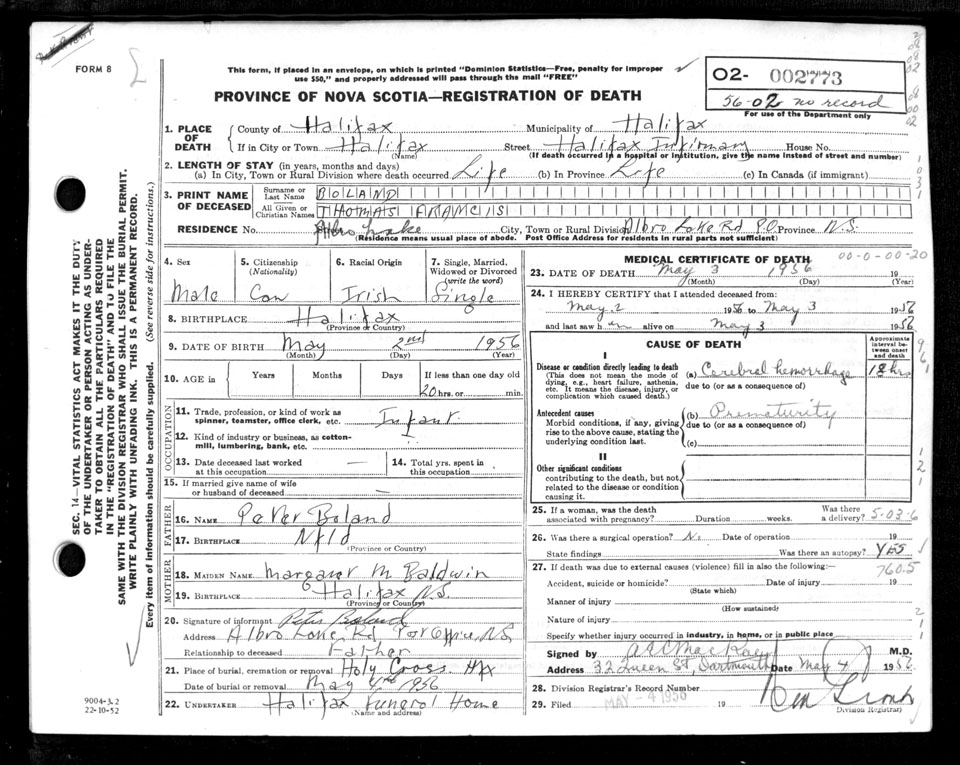 FORM 8
This form, if placed in an envelope, on which is printed "Dominion Statistics—Free, penalty for improper
use $50," and properly addressed will pass through the mail "FREE"
PROVINCE OF NOVA SCOTIA—REGISTRATION OF DEATH
O2- 002773
56-02 no record
For use of the Department only
1. PLACE OF DEATH
County of Halifax Municipality of Halifax
If in City or Town Halifax Street Halifax Infirmary House No.
(Name) (If death occurred in a hospital or institution, give the name instead of street and number)
2. LENGTH OF STAY (in years, months and days)
(a) In City, Town or Rural Division where death occurred Life (b) In Province Life (c) In Canada (if immigrant)
3. PRINT NAME OF DECEASED
Surname or Last Name BOLAND
All Given or Christian Names THOMAS FRANCIS
RESIDENCE No. Albro Lake City, Town or Rural Division Albro Lake Rd P.O. Province N.S.
(Residence means usual place of abode. Post Office Address for residents in rural parts not sufficient)
4. Sex Male
5. Citizenship (Nationality) Can
6. Racial Origin Irish
7. Single, Married, Widowed or Divorced (write the word) Single
8. BIRTHPLACE Halifax
(Province or Country)
9. DATE OF BIRTH May 2nd 1956
(Month) (Day) (Year)
10. AGE in Years Months Days If less than one day old
20 hrs. or min.
OCCUPATION
11. Trade, profession, or kind of work as spinner, teamster, office clerk, etc. Infant
12. Kind of industry or business, as cotton-mill, lumbering, bank, etc.
13. Date deceased last worked at this occupation —
14. Total yrs. spent in this occupation
15. If married give name of wife or husband of deceased —
FATHER
16. NAME Peter Boland
17. BIRTHPLACE Nfld
(Province or Country)
MOTHER
18. MAIDEN NAME Margaret M Baldwin
19. BIRTHPLACE Halifax N.S.
(Province or Country)
20. Signature of informant Peter Boland
Address Albro Lake Rd, Post Office, N.S
Relationship to deceased Father
21. Place of burial, cremation or removal Holy Cross Hfx
Date of burial or removal May 1956
22. UNDERTAKER Halifax Funeral Home
(Name and address)
MEDICAL CERTIFICATE OF DEATH
00-0-00-20
23. DATE OF DEATH May 3 1956 19
(Month) (Day) (Year)
24. I HEREBY CERTIFY that I attended deceased from:
May 2 1956 to May 3 1956
and last saw h im alive on May 3 1956
CAUSE OF DEATH
Approximate interval between onset and death
I
Disease or condition directly leading to death (a) Cerebral hemorrhage 18 hrs
(This does not mean the mode of dying, e.g., heart failure, asthenia, etc. It means the disease, injury, or complication which caused death.)
due to (or as a consequence of)
Antecedent causes (b) Prematurity
Morbid conditions, if any, giving rise to the above cause, stating the underlying condition last.
due to (or as a consequence of)
(c)
II
Other significant conditions
contributing to the death, but not related to the disease or condition causing it.
25. If a woman, was the death associated with pregnancy? Duration weeks. Was there a delivery? 5-03-6
26. Was there a surgical operation? No Date of operation 19
State findings Was there an autopsy? YES
27. If death was due to external causes (violence) fill in also the following:— 760.5
Accident, suicide or homicide? Date of injury 19
(State which)
Manner of injury
(How sustained)
Nature of injury
Specify whether injury occurred in industry, in home, or in public place
Signed by MacKay M.D.
Address 32 Queen St, Dartmouth Date May 4 1956
28. Division Registrar's Record Number
29. Filed MAY - 4 1956 19
Division Registrar)
SEC. 14—VITAL STATISTICS ACT MAKES IT THE DUTY
OF THE UNDERTAKER OR PERSON ACTING AS UNDER-
TAKER TO OBTAIN ALL THE PARTICULARS REQUIRED
IN THE "REGISTRATION OF DEATH" AND TO FILE THE
SAME WITH THE DIVISION REGISTRAR WHO SHALL ISSUE THE BURIAL PERMIT.
WRITE PLAINLY WITH UNFADING INK. THIS IS A PERMANENT RECORD.
Every item of information should be carefully supplied. (See reverse side for instructions.)
9004-3.2
22-10-52